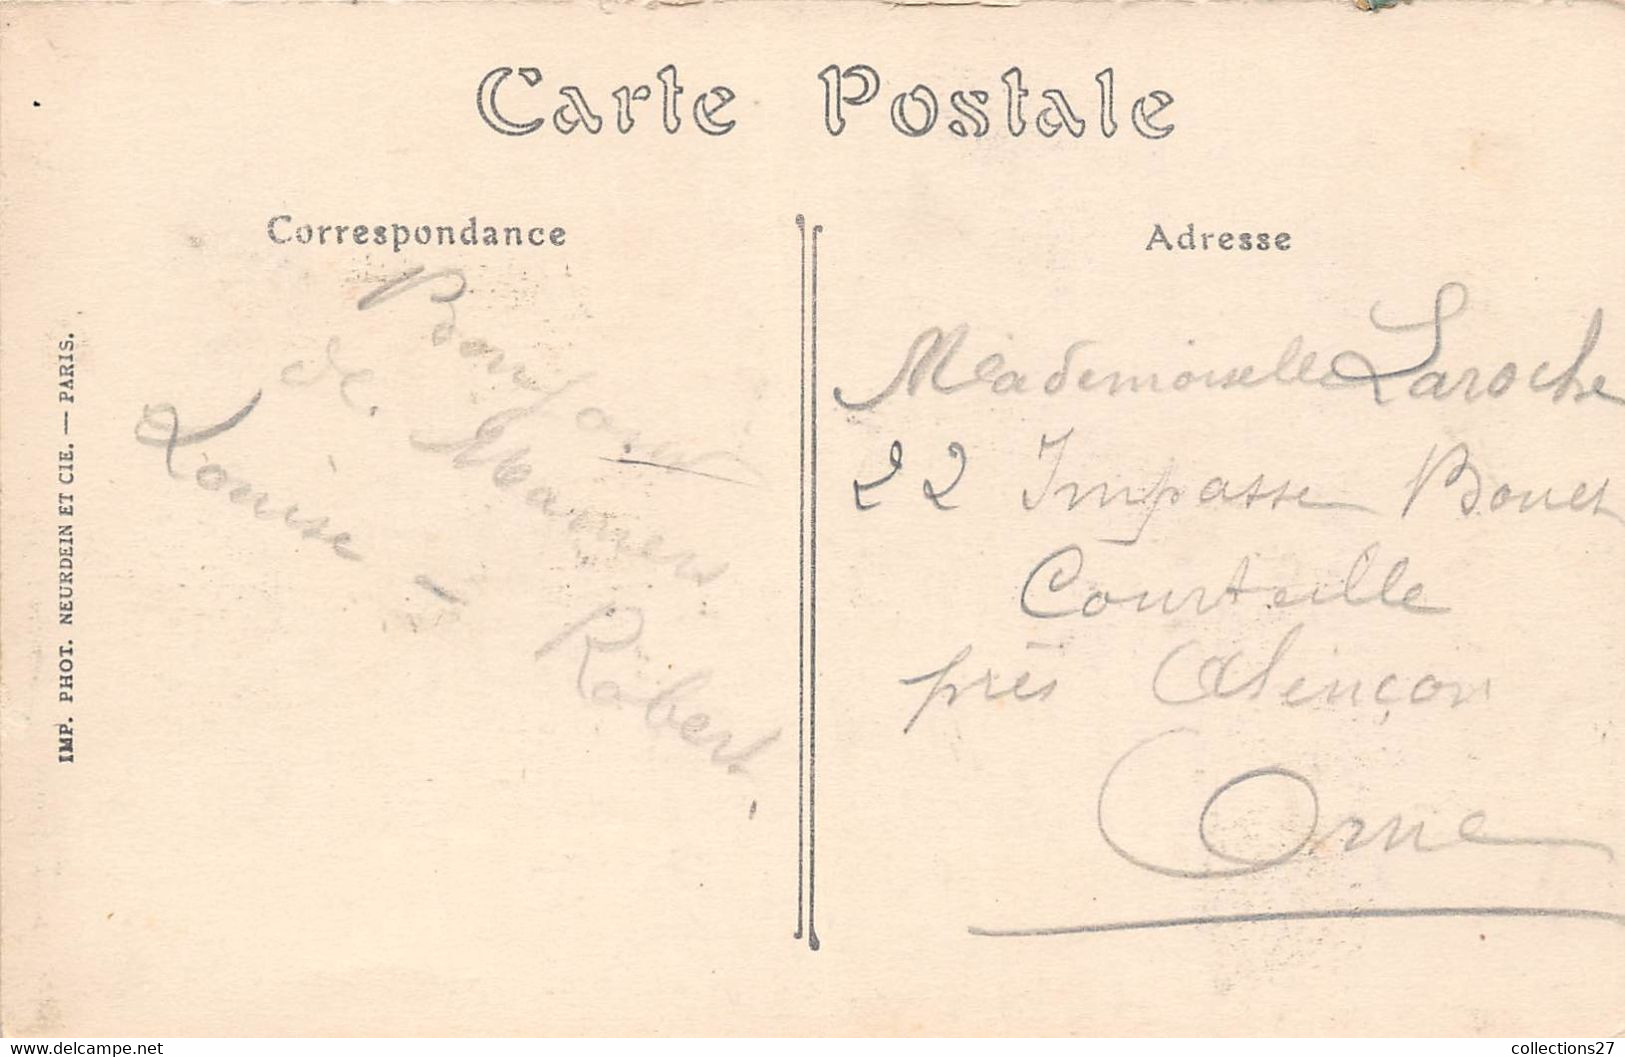 Carte Postale
Correspondance
Bonjour
de Mamers
Louise à Robert
Adresse
Mademoiselle Laroche
22 Impasse Bouet
Courteille
près Alençon
Orne
IMP. PHOT. NEURDEIN ET CIE. — PARIS.
collections27